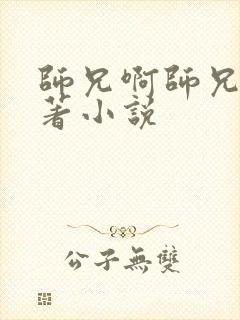 師兄啊師兄
著小説
公子無雙